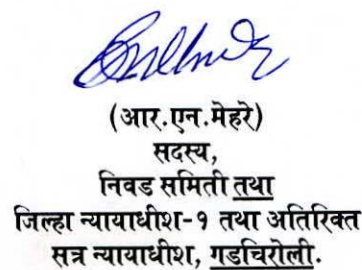 (आर.एन.मेहरे)
सदस्य,
निवड समिती तथा
जिल्हा न्यायाधीश-१ तथा अतिरिक्त
सत्र न्यायाधीश, गडचिरोली.